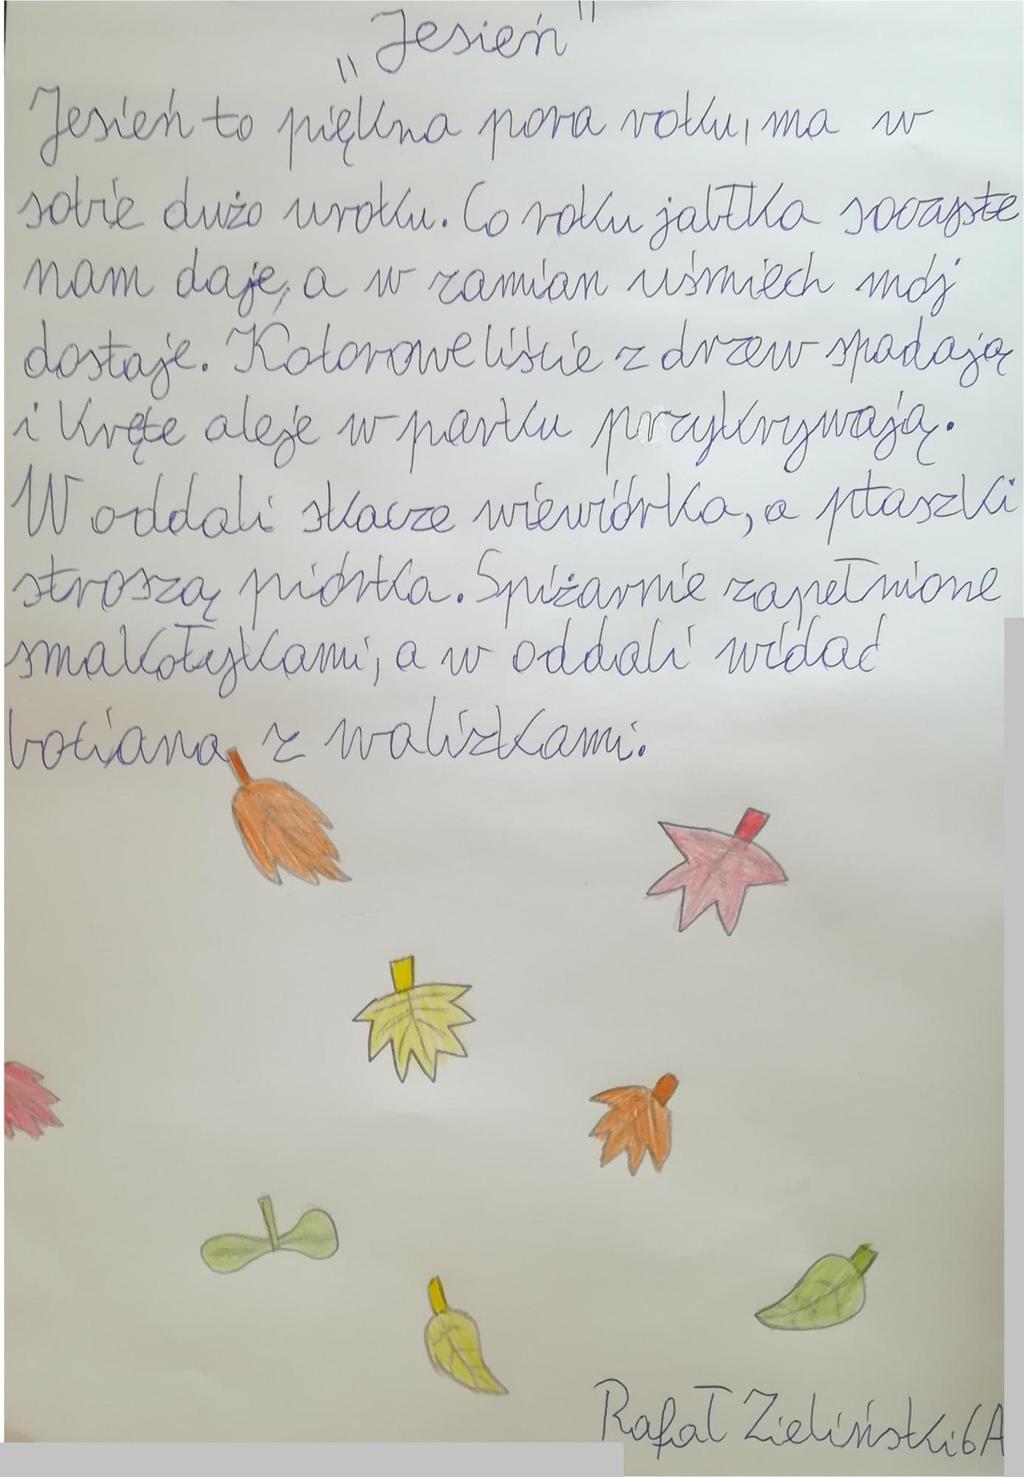 „Jesień"
Jesień to piękna pora roku, ma w
sobie dużo uroku. Co roku jabłka soczyste
nam daje, a w zamian uśmiech mój
dostaje. Kolorowe liście z drzew spadają
i kręte aleje w parku przykrywają.
W oddali skacze wiewiórka, a ptaszki
stroszą piórka. Spiżarnie zapełnione
smakołykami, a w oddali widać
bociana z walizkami.
Rafał Zieliński 6A